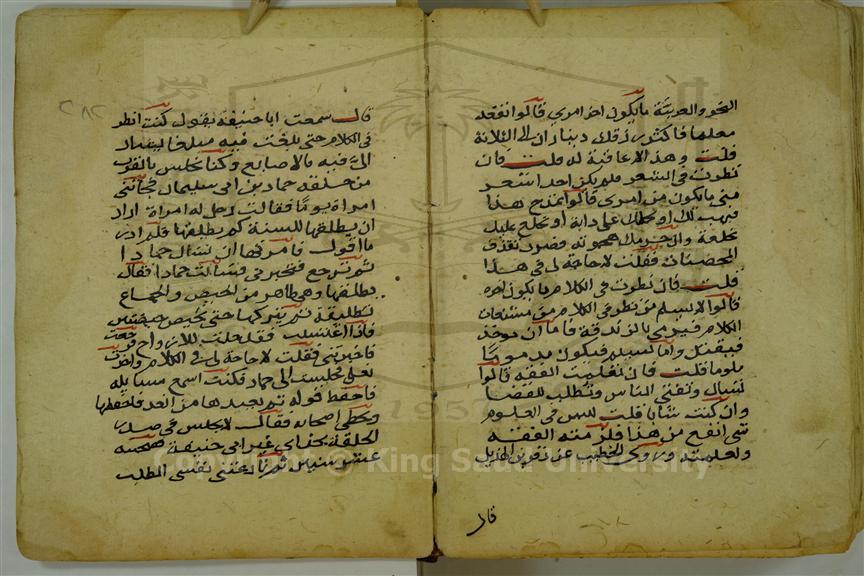 النحو والعربية ما يكون اخر امري قالوا تقعد
معلما فاكثر رزقك ديناران الى الثلاثة
قلت وهذا لا عاقبة له قلت فان
نظرت في الشعر فلم يكن احد اشعر
مني ما يكون من امري قالوا تمدح هذا
فيهب لك او يحملك على دابة او يخلع عليك
خلعة وان حرمك هجوته فصرت تقذف
المحصنات فقلت لا حاجة لي في هذا
قلت فان نظرت في الكلام ما يكون اخره
قالوا لا يسلم من نظر في الكلام من مشنعات
الكلام فيرمى بالزندقة فاما ان يوخذ
فيقتل واما يسلم فيكون مذموما
ملوما قلت فان تعلمت الفقه قالوا
تسأل وتفتي الناس وتطلب للقضا
وان كنت شابا قلت ليس في العلوم
شي انفع من هذا فلزمت الفقه
وتعلمته وروى الخطيب عن زفر بن الهذيل
قال
قال سمعت ابا حنيفة يقول كنت انظر
في الكلام حتى بلغت فيه مبلغا يشار
الي فيه بالاصابع وكنا نجلس بالقرب
من حلقة حماد بن ابي سليمان فجأتني
امراة يوما فقالت رجل له امراة اراد
ان يطلقها للسنة كم يطلقها فلم ادر
ما اقول فامرتها ان تسال حمادا
ثم ترجع فتخبرني فسألت حمادا فقال
يطلقها وهي طاهر من الحيض والجماع
تطليقة ثم يتركها حتى تحيض حيضتين
فاذا اغتسلت فقد حلت للازواج فرجعت
فاخبرتني فقلت لا حاجة لي في الكلام واخذت
نعلي فجلست الى حماد فكنت اسمع مسايله
فاحفظ قوله ثم يعيدها من الغد فاحفظها
ويخطي اصحابه فقال لا يجلس في صدر
الحلقة بحذاي غير ابي حنيفة فصحبته
عشر سنين ثم نازعتني نفسي الطلب
Copyright © King Saud University
1957